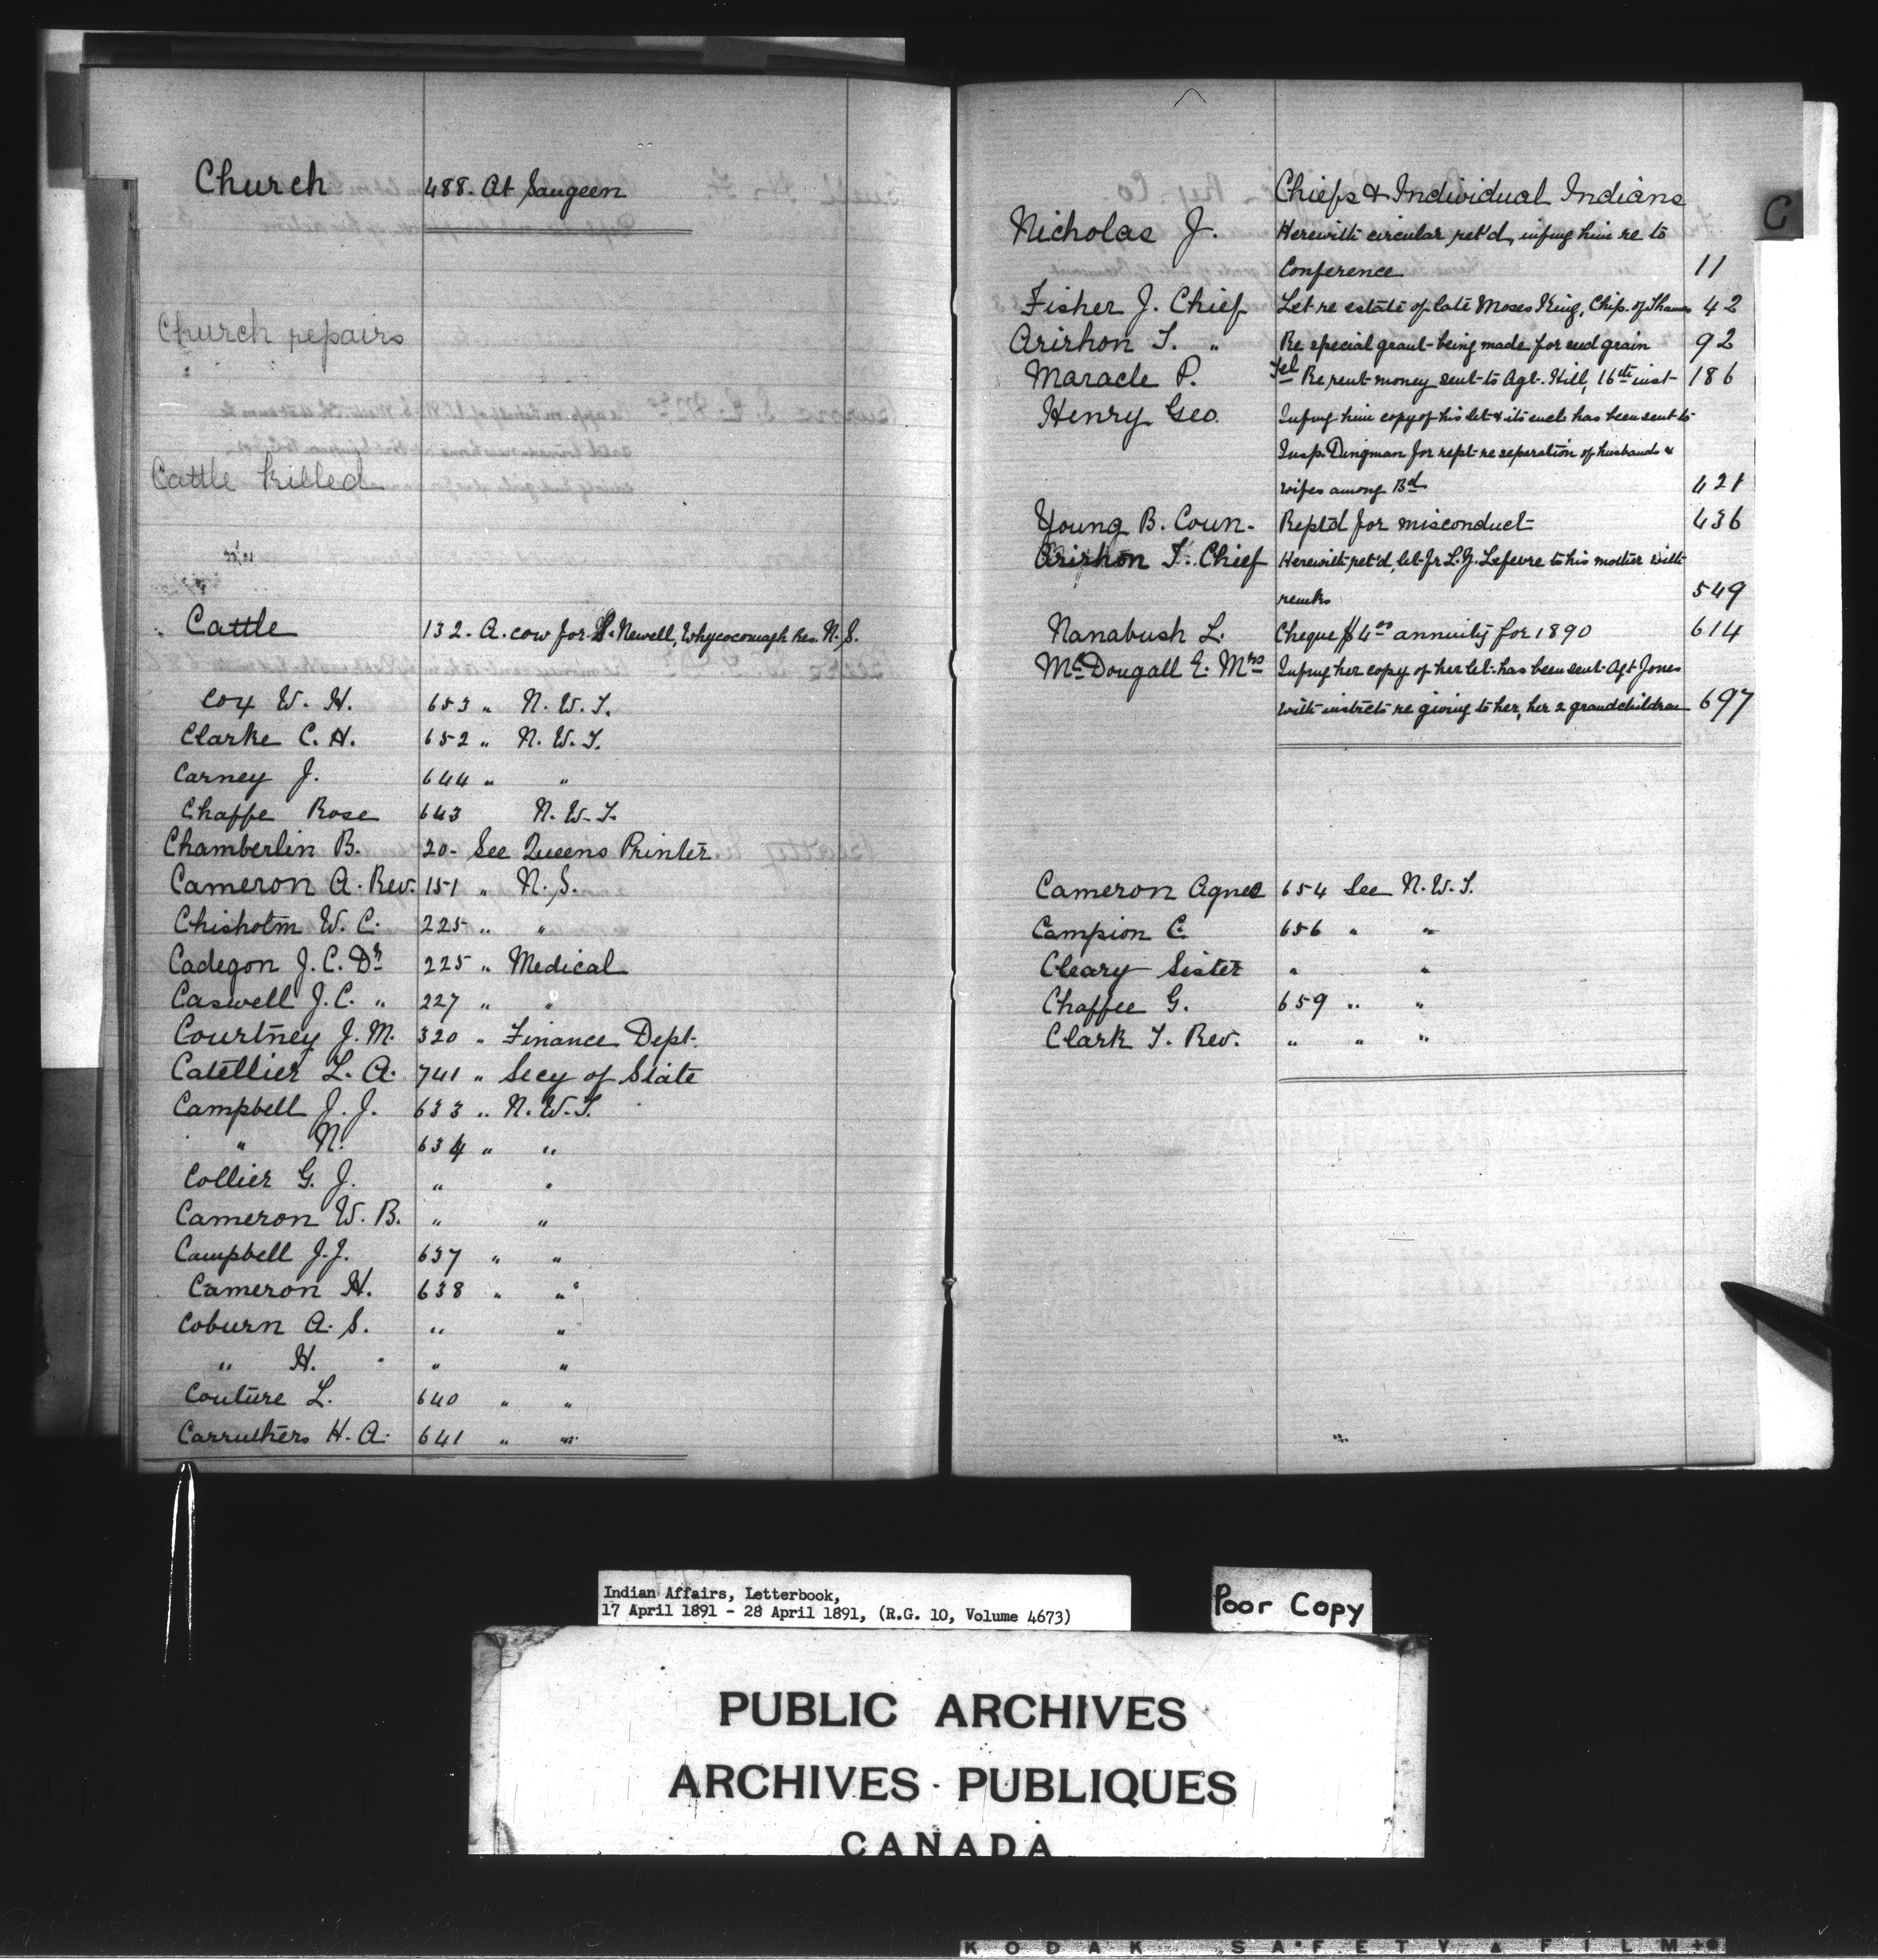 Church 488. At Saugeen
Church repairs
Cattle killed
Cattle 132. A. cow for S. Newell, Whycocomagh Res. N.S.
Cox W. H. 653 " N. W. T.
Clarke C. H. 652 " N. W. T.
Carney J. 644 " "
Chaffe Rose 643 N. W. T.
Chamberlin B. 20- See Queens Printer
Cameron A. Rev. 151 " N. S.
Chisholm W. C. 225 " "
Cadegon J. C. Dr 225 " Medical
Caswell J. C. " 227 " "
Courtney J. M. 320 " Finance Dept.
Catellier L. A. 741 " Secy of State
Campbell J. J. 633 " N. W. T.
" N. 634 " "
Collier G. J. " "
Cameron W. B. " "
Campbell J. J. 637 " "
Cameron H. 638 " "
Coburn A. S. " "
" H. " "
Couture L. 640 " "
Carruthers H. A. 641 " "
C
Chiefs & Individual Indians
Nicholas J. Herewith circular ret'd, infmg him re to
Conference 11
Fisher J. Chief Let re estate of late Moses King, Chip. of Thames 42
Arirhon T. " Re special grant being made for seed grain 92
Maracle P. Tel Re rent money sent to Agt. Hill, 16th inst 186
Henry Geo. Infmg him copy of his let & its encls has been sent to
Insp. Dingman for rept re separation of husbands &
wifes among Bd 421
Young B. Coun. Rept'd for misconduct 436
Arirhon T. Chief Herewith ret'd, let fr L. J. Lefevre to his mother with
remks 549
Nanabush L. Cheque $4.00 annuity for 1890 614
McDougall E. Mrs Infmg her copy of her let has been sent Agt Jones
with instrcts re giving to her, her 2 grandchildren 697
Cameron Agnes 654 See N. W. T.
Campion C. 656 " "
Cleary Sister " "
Chaffee G. 659 " "
Clark T. Rev. " " "
Indian Affairs, Letterbook,
17 April 1891 - 28 April 1891, (R.G. 10, Volume 4673)
Poor Copy
PUBLIC ARCHIVES
ARCHIVES PUBLIQUES
CANADA
KODAK SAFETY FILM